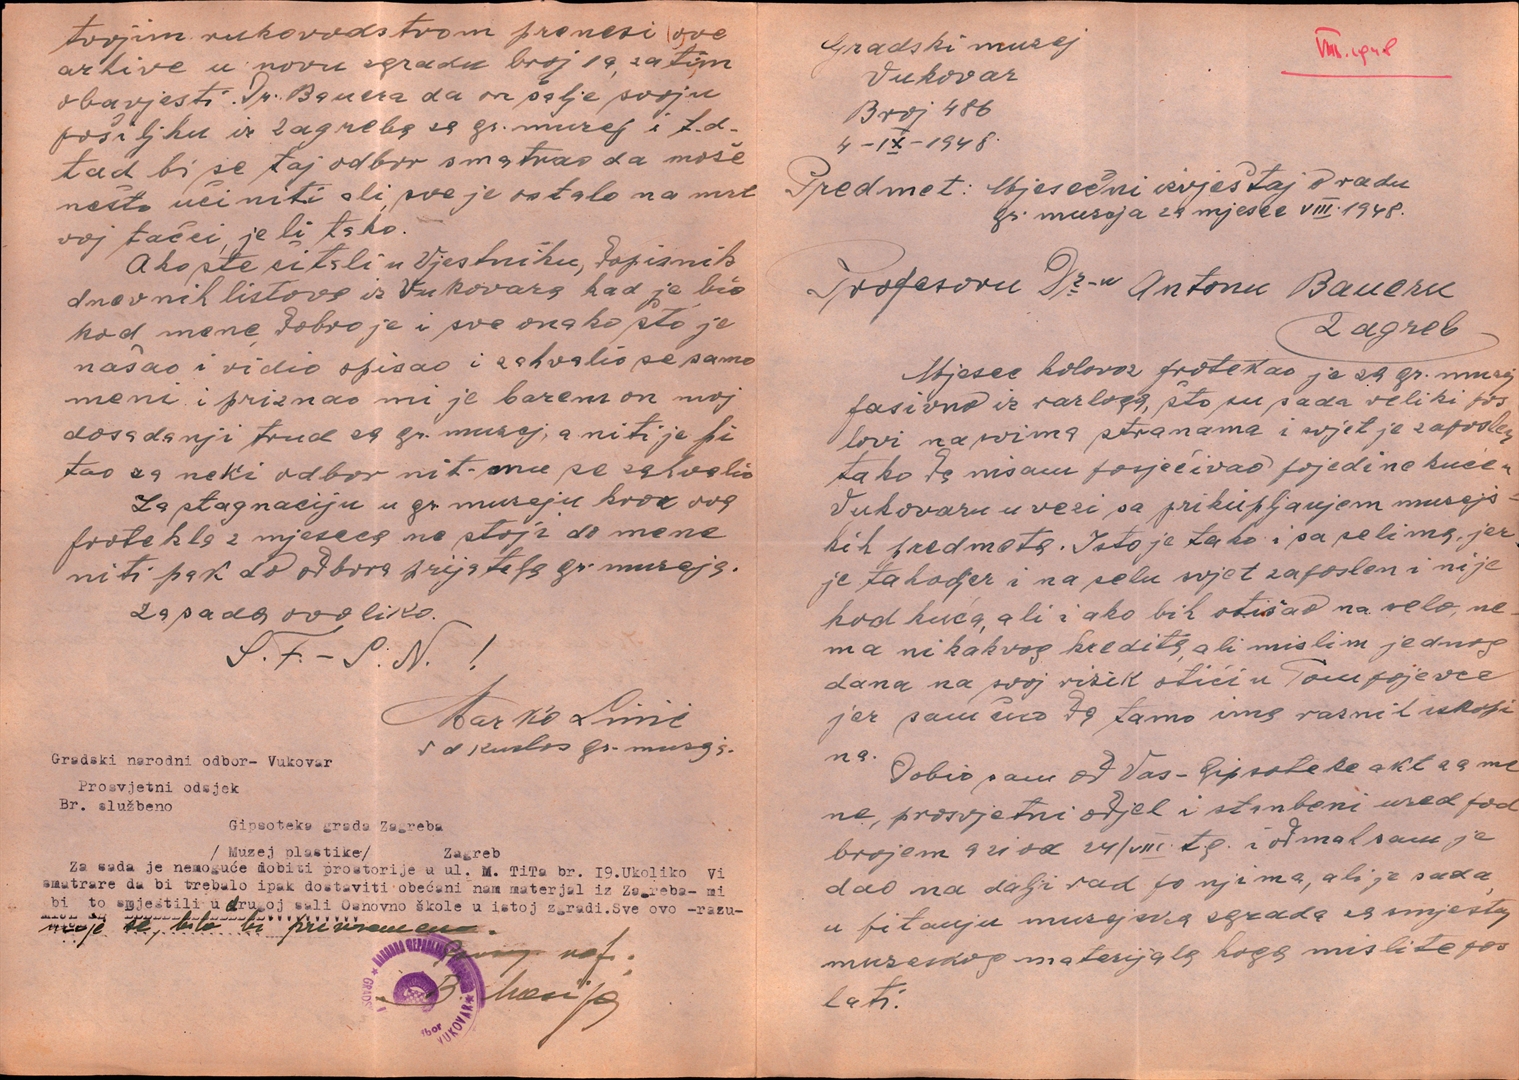 tvojim rukovodstvom prenesi ove
arhive u novu zgradu broj 19, zatim
obavjesti Dr. Bauera da on šalje svoju
pošiljku iz Zagreba za gr. muzej i t.d.
tad bi se taj odbor smatrao da može
nešto učiniti ali sve je ostalo na mrt
voj tačci, je li tako.
Ako ste čitali u Vjestniku, Dopisnik
dnevnih listova iz Vukovara kad je bio
kod mene, dobro je i sve onako što je
našao i vidio opisao i zahvalio se samo
meni i priznao mi je barem on moj
dosadanji trud za gr. muzej, a niti je pi
tao za neki odbor nit mu se zahvalio
Za stagnaciju u gr. muzeju kroz ova
protekla 2 mjeseca ne stoji do mene
niti pak do odbora prijatelja gr. muzeja.
Za sada ovoliko.
S. F. - S. N. !
Marko Linić
kustos gr. muzeja.
Gradski narodni odbor- Vukovar
Prosvjetni odsjek
Br. službeno
Gipsoteka grada Zagreba
/ Muzej plastike/ Zagreb
Za sada je nemoguće dobiti prostorije u ul. M. TiTa br. I9.Ukoliko Vi
smatrare da bi trebalo ipak dostaviti obećani nam materjal iz Zagreba- mi
bi to smjestili u drugoj sali Osnovno škole u istoj zgradi.Sve ovo -razu-
mije se, bilo bi privremeno.
VUKOVAR
Gradski muzej
Vukovar
Broj 486
4-IX-1948.
VIII. 1948
Predmet: Mjesečni izvještaj o radu
gr. muzeja za mjesec VIII. 1948.
Profesoru Dr-u Antonu Baueru
Zagreb
Mjesec kolovoz protekao je za gr. muzej
pasivno iz razloga, što su sada veliki pos
lovi na svima stranama i svjet je zaposlen
tako da nisam posjećivao pojedine kuće u
Vukovaru u vezi sa prikupljanjem muzejs=
kih predmeta. Isto je tako i sa selima, jer
je također i na selu svjet zaposlen i nije
kod kuća, ali i ako bih otišao na selo, ne-
ma nikakvog kredita, ali mislim jednog
dana na svoj rizik otići u Tompojevce
jer sam čuo da tamo ima raznih iskopi
na.
Dobio sam od Vas - Gipsoteke akt za me
ne, prosvjetni odjel i stanbeni ured pod
brojem 921 od 24/VIII. t.g. i odmah sam je
dao na dalji rad po njima, ali je sada
u pitanju muzejska zgrada za smjestaj
muzeskog materijala koga mislite pos
lati.